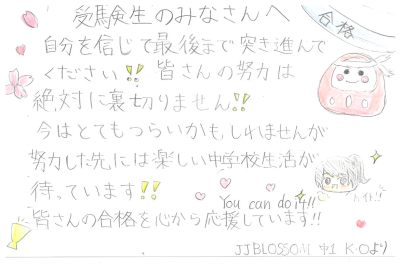 受験生のみなさんへ
合格
自分を信じて最後まで突き進んで
ください!! 皆さんの努力は
絶対に裏切りません!!
今はとてもつらいかもしれませんが
努力した先には楽しい中学校生活が
待っています!!
You can do it!!
ファイト!!
皆さんの合格を心から応援しています!!
JJBLOSSOM 中1 K・Oより